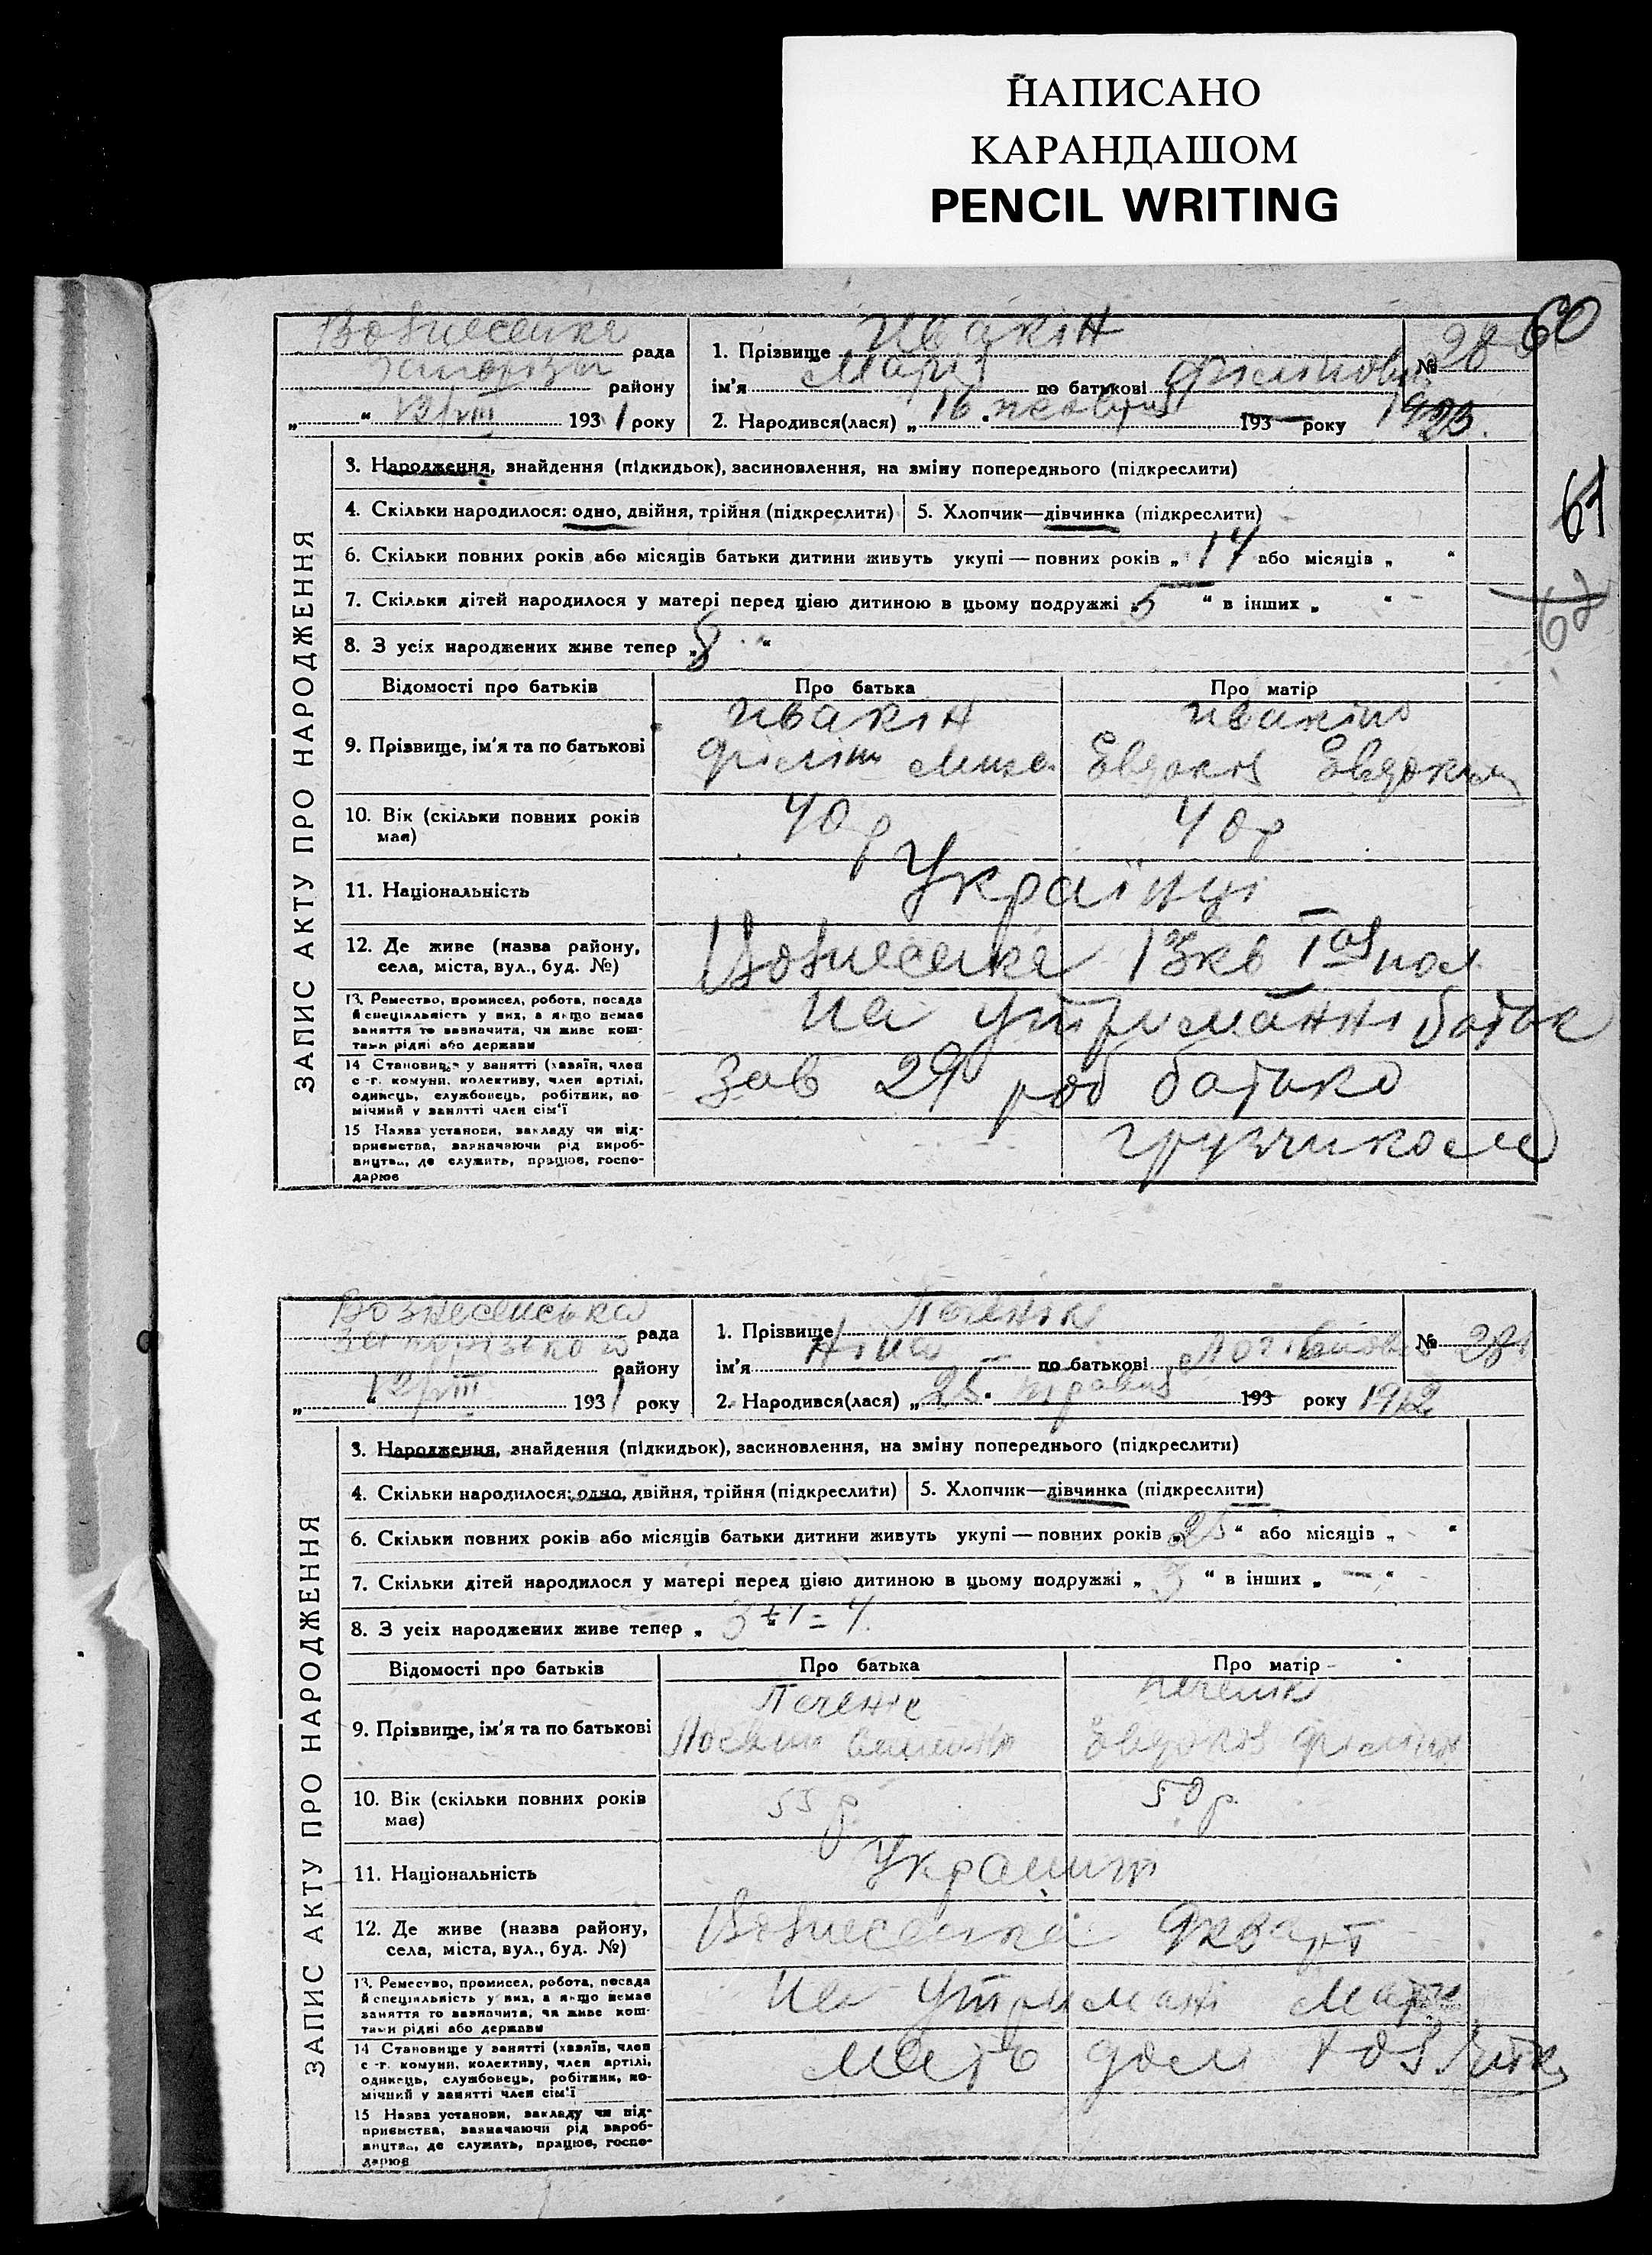 НАПИСАНО
КАРАНДАШОМ
PENCIL WRITING
60
61
62
ЗАПИС АКТУ ПРО НАРОДЖЕННЯ
Вознесенка рада
району
„ “ 12/VIII 1931 року
1. Прізвище Ивакін
ім'я Марія по батькові
№ 28
2. Народився(лася) „16“ жовтня 193 року 1923.
3. Народження, знайдення (підкидьок), засиновлення, на зміну попереднього (підкреслити)
4. Скільки народилося: одно, двійня, трійня (підкреслити) 5. Хлопчик—дівчинка (підкреслити)
6. Скільки повних років або місяців батьки дитини живуть укупі — повних років „14 або місяців „ “
7. Скільки дітей народилося у матері перед цією дитиною в цьому подружжі „5“ в інших „ “
8. З усіх народжених живе тепер „8“
Відомості про батьків Про батька Про матір
9. Прізвище, ім'я та по батькові Ивакін Ивакіна
Філіп Евдокія Евдоким
10. Вік (скільки повних років має) 40 р 40 р
11. Національність Українці
12. Де живе (назва району, села, міста, вул., буд. №) Вознесенка 13 кв
13. Ремество, промисел, робота, посада й спеціяльність у них, а якщо немає заняття то зазначити, чи живе коштами рідні або держави на утриманні батьк
14 Становище у занятті (хазяїн, член с.-г. комуни, колективу, член артілі, одинець, службовець, робітник, помічний у занятті член сім'ї зав 29 роб батько
15 Назва установи, закладу чи підприємства, зазначаючи рід виробництва, де служить, працює, господарює грузчиком
ЗАПИС АКТУ ПРО НАРОДЖЕННЯ
Вознесенська рада
Запорізького району
„ “ 12/VIII 1931 року
1. Прізвище Печенік
ім'я Ніна по батькові
№ 281
2. Народився(лася) „25“ травня 193 року 1912
3. Народження, знайдення (підкидьок), засиновлення, на зміну попереднього (підкреслити)
4. Скільки народилося: одно, двійня, трійня (підкреслити) 5. Хлопчик—дівчинка (підкреслити)
6. Скільки повних років або місяців батьки дитини живуть укупі — повних років „25“ або місяців „ “
7. Скільки дітей народилося у матері перед цією дитиною в цьому подружжі „3“ в інших „—“
8. З усіх народжених живе тепер „3+1=4.
Відомості про батьків Про батька Про матір
9. Прізвище, ім'я та по батькові Печенік Печенік
Евдокія
10. Вік (скільки повних років має) 55 р. 50 р.
11. Національність Українці
12. Де живе (назва району, села, міста, вул., буд. №) Вознесенка 9 кварт
13. Ремество, промисел, робота, посада й спеціяльність у них, а якщо немає заняття то зазначити, чи живе коштами рідні або держави на утримані
14 Становище у занятті (хазяїн, член с.-г. комуни, колективу, член артілі, одинець, службовець, робітник, помічний у занятті член сім'ї мать дом
15 Назва установи, закладу чи підприємства, зазначаючи рід виробництва, де служить, працює, господарює